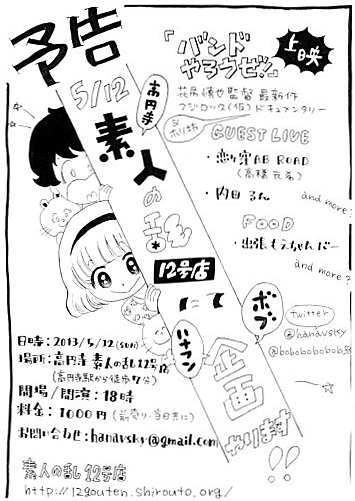 予告
『バンドやろうぜ!』
上映
5/12
高円寺
花尾慎也監督 最新作
フジロッ久(仮)ドキュメンタリー
GUEST LIVE
・恋々窪AB ROAD
(高橋元希)
・内田るん
and more?
FOOD
・出張もえちゃんバー
and more?
素人の乱
12号店
にて
ボブ
ハナフン
企画
やります!!
twitter
@hanavsky
@bobobobobob
日時:2013/5/12(sun)
場所:高円寺 素人の乱12号店
(高円寺駅から徒歩7分)
開場/開演:18時
料金:1000円(前売り・当日共に)
お問い合わせ:hanavsky@gmail.com
素人の乱 12号店
http://12gouten.shirouto.org/